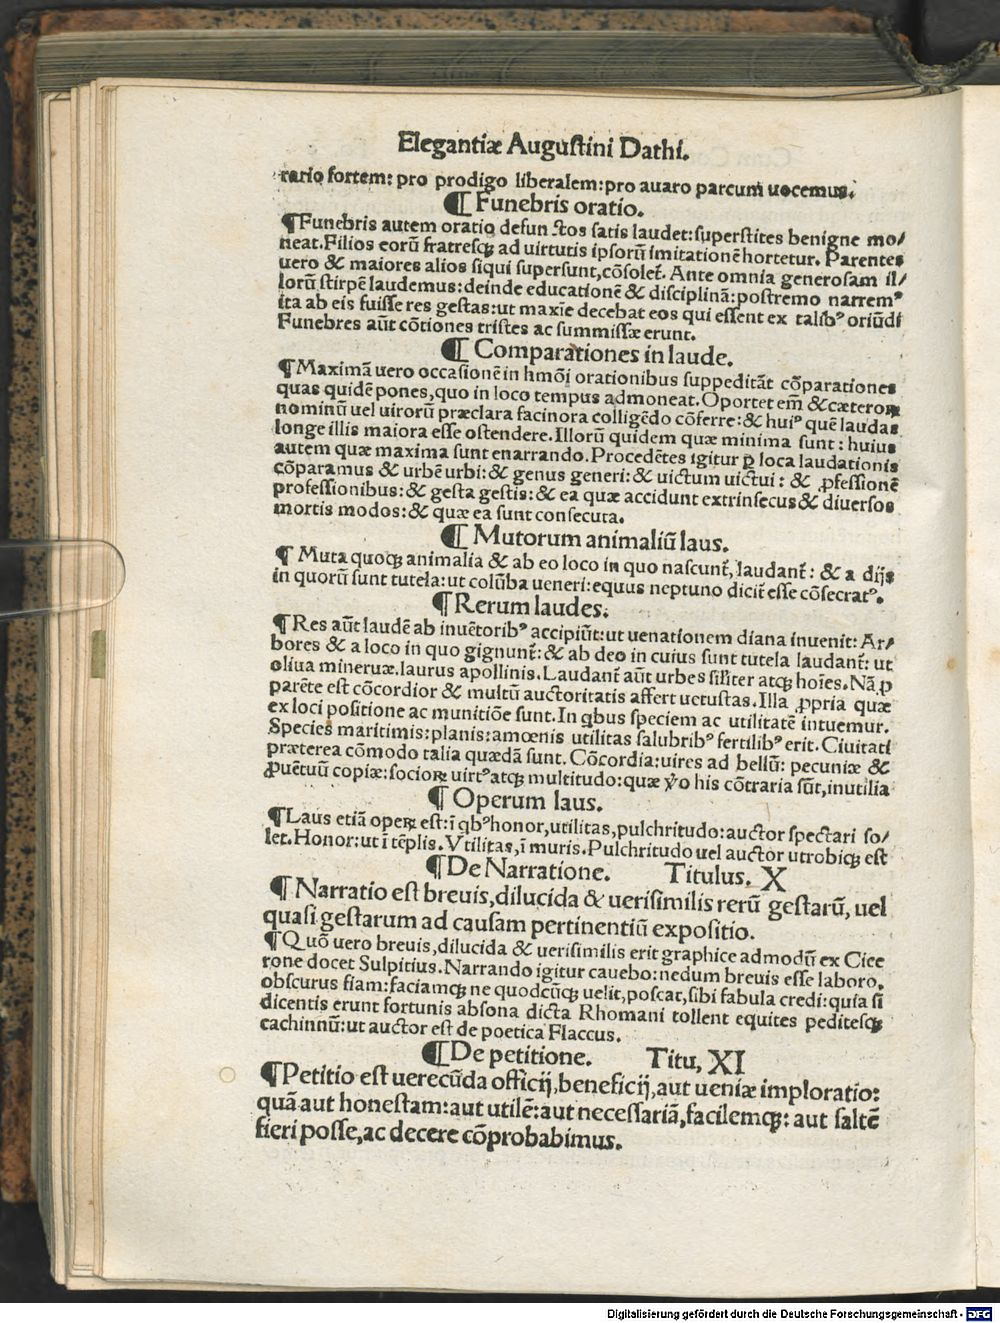 Elegantiæ Augustini Dathi.
rario fortem: pro prodigo liberalem: pro auaro parcum uocemus.
¶ Funebris oratio.
¶Funebris autem oratio defunctos satis laudet: superstites benigne mo/
neat. Filios eorũ fratresqꝫ ad uirtutis ipsorũ imitationẽ hortetur. Parentes
uero & maiores alios siqui supersunt, cõsolet̃. Ante omnia generosam il/
lorũ stirpẽ laudemus: deinde educationẽ & disciplinã: postremo narremꝰ
ita ab eis fuisse res gestas: ut maxie decebat eos qui essent ex talibꝰ oriũdi
Funebres aũt cõtiones tristes ac summissæ erunt.
¶ Comparationes in laude.
¶Maximã uero occasionẽ in hmõi orationibus suppeditãt cõparationes
quas quidẽ pones, quo in loco tempus admoneat. Oportet em̃ & cæteroꝝ
nominũ uel uirorũ præclara facinora colligẽdo cõferre: & huiꝰ quẽ laudas
longe illis maiora esse ostendere. Illorũ quidem quæ minima sunt: huius
autem quæ maxima sunt enarrando. Procedẽtes igitur ꝑ loca laudationis
cõparamus & urbẽ urbi: & genus generi: & uictum uictui: & ꝓfessionẽ
professionibus: & gesta gestis: & ea quæ accidunt extrinsecus & diuersos
mortis modos: & quæ ea sunt consecuta.
¶ Mutorum animaliũ laus.
¶ Muta quoqꝫ animalia & ab eo loco in quo nascunt̃, laudant̃: & a dijs
in quorũ sunt tutela: ut colũba ueneri: equus neptuno dicit̃ esse cõsecratꝰ.
¶ Rerum laudes.
¶ Res aũt laudẽ ab inuẽtoribꝰ accipiũt: ut uenationem diana inuenit: Ar/
bores & a loco in quo gignunt̃: & ab deo in cuius sunt tutela laudant̃: ut
oliua mineruæ. laurus apollinis. Laudant̃ aũt urbes sil̃iter atqꝫ hoĩes. Nã ꝓ
parẽte est cõcordior & multũ auctoritatis affert uetustas. Illa ꝓpria quæ
ex loci positione ac munitiõe sunt. In qbus speciem ac utilitatẽ intuemur.
Species maritimis: planis: amœnis utilitas salubribꝰ fertilibꝰ erit. Ciuitati
præterea cõmodo talia quædã sunt. Cõcordia: uires ad bellũ: pecuniæ &
ꝓuẽtuũ copiæ: socioꝝ uirtꝰ atqꝫ multitudo: quæ ỹo his cõtraria sũt, inutilia
¶ Operum laus.
¶Laus etiã opeꝝ est: ĩ qbꝰ honor, utilitas, pulchritudo: auctor spectari so/
let. Honor: ut ĩ tẽplis. Vtilitas, ĩ muris. Pulchritudo uel auctor utrobiqꝫ est
¶ De Narratione. Titulus. X
¶ Narratio est breuis, dilucida & uerisimilis rerũ gestarũ, uel
quasi gestarum ad causam pertinentiũ expositio.
¶Quõ uero breuis, dilucida & uerisimilis erit graphice admodũ ex Cice
rone docet Sulpitius. Narrando igitur cauebo: nedum breuis esse laboro,
obscurus fiam: faciamqꝫ ne quodcũqꝫ uelit, poscat, sibi fabula credi: quia si
dicentis erunt fortunis absona dicta Rhomani tollent equites peditesqꝫ
cachinnũ: ut auctor est de poetica Flaccus.
¶ De petitione. Titu, XI
¶Petitio est uerecũda officij, beneficij, aut ueniæ imploratio:
quã aut honestam: aut utilẽ: aut necessariã, facilemqꝫ: aut saltẽ
fieri posse, ac decere cõprobabimus.
Digitalisierung gefördert durch die Deutsche Forschungsgemeinschaft - DFG